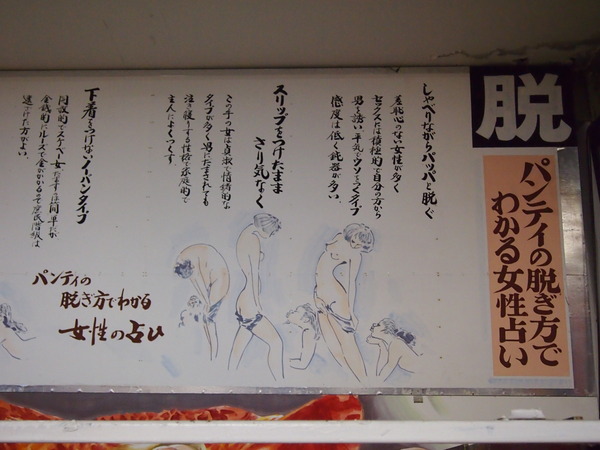 脱
パンティの脱ぎ方で
わかる女性占い
しゃべりながらパッパッと脱ぐ
羞恥心のない女性が多く
セックスには積極的で自分の方から
男を誘い平気でウソをつくタイプ
感度は低く鈍器が多い。
スリップをつけたまま
さり気なく
この手の女は貞淑で情緒的な
タイプが多く男にだまされても
泣き寝りする性格で家庭的で
主人によくつくす。
下着をつけないノーパンタイプ
開放的でスケベな女
金銭的にルーズで金がかかるので
避けた方がよい。
パンティの
脱ぎ方でわかる
女性の占い